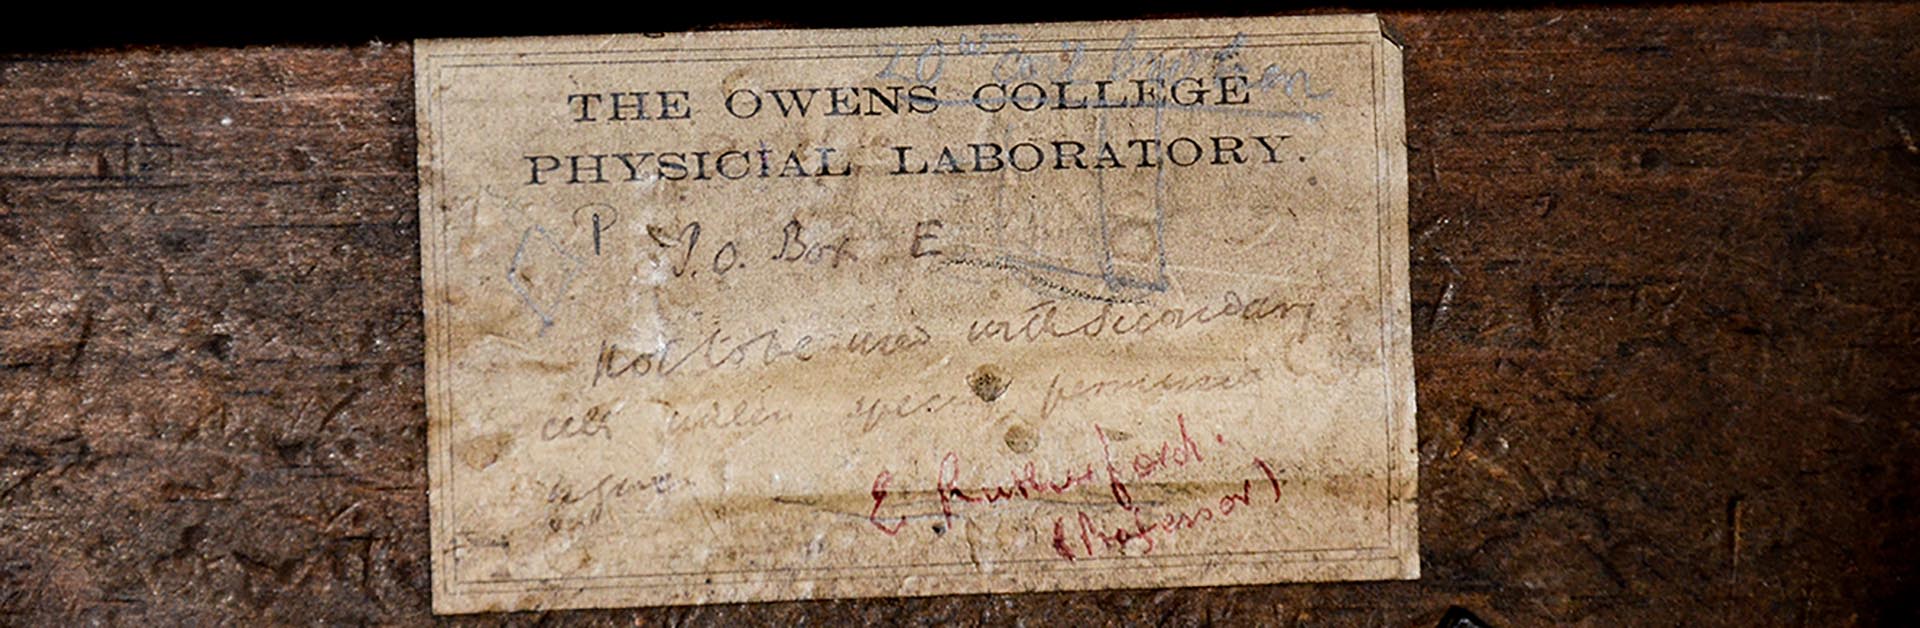 20 coil broken
THE OWENS COLLEGE
PHYSICIAL LABORATORY.
P P.O. Box E
Not to be used with secondary
cells unless special permission
is given.
E Rutherford.
(Professor)